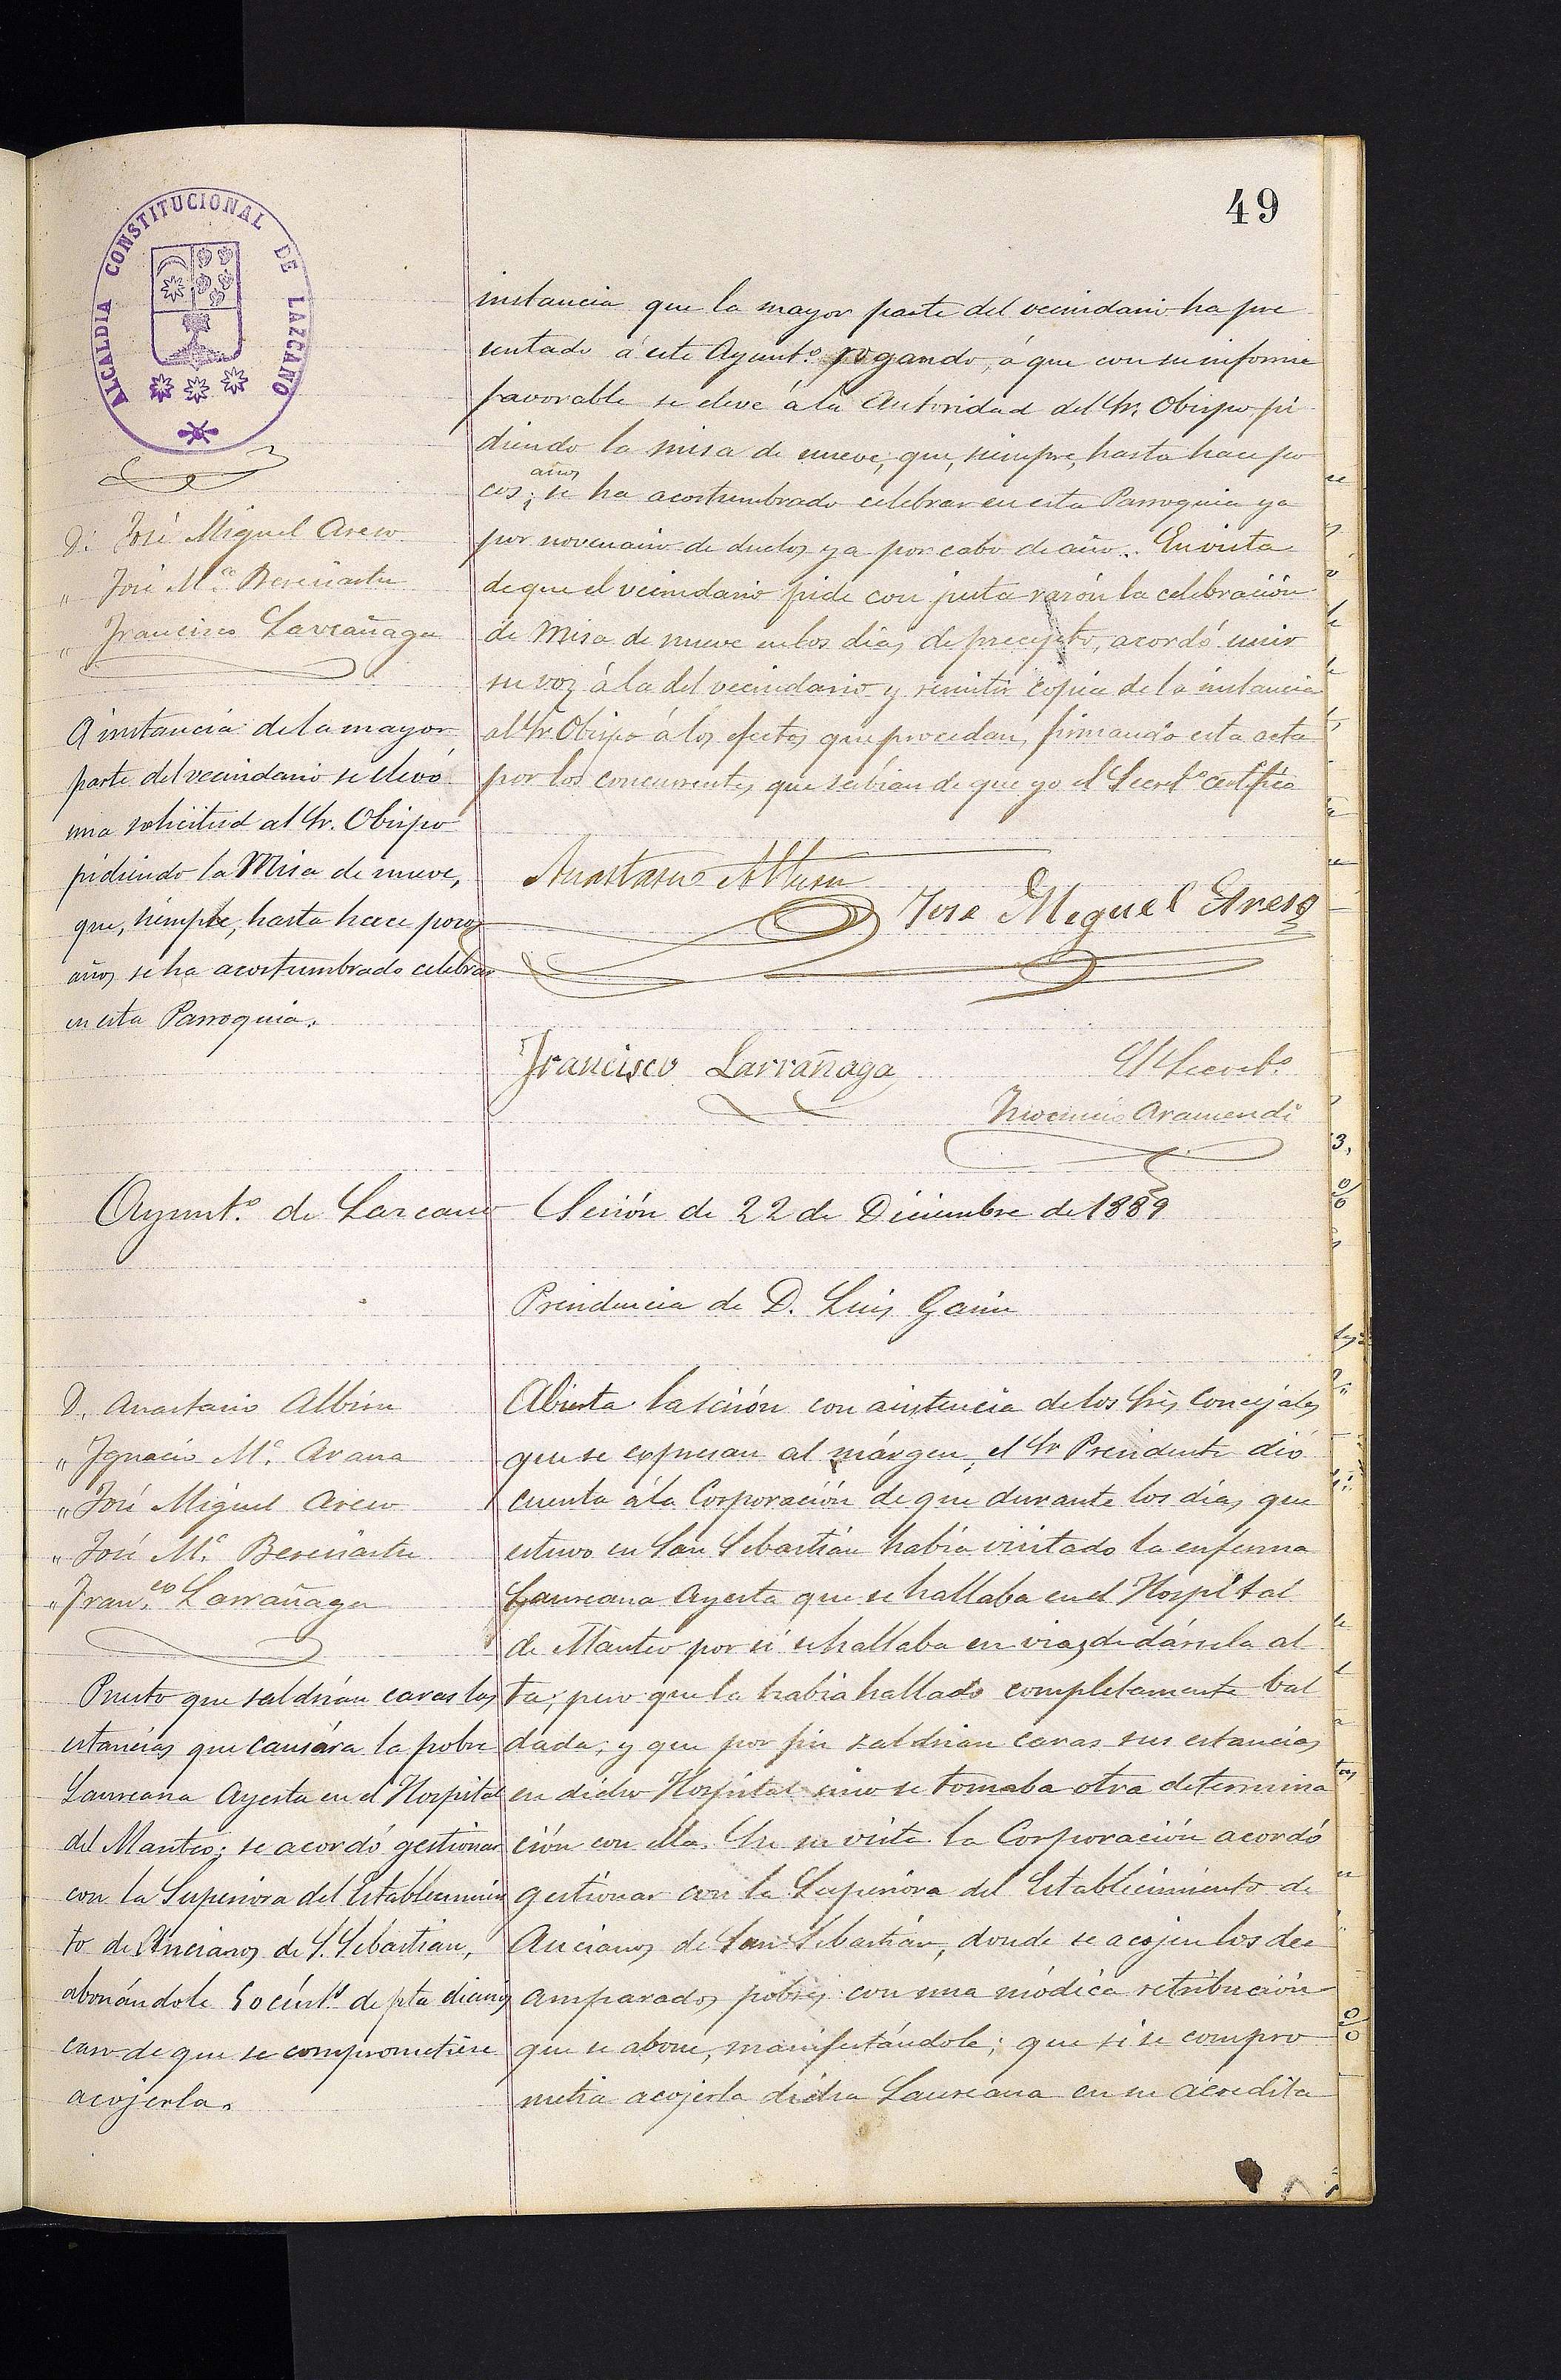 49
ALCALDIA CONSTITUCIONAL DE LAZCANO
D. José Miguel Areso
" José M.ª Bereciartu
" Francisco Larrañaga
A instancia de la mayor
parte del vecindario se elevó
una solicitud al Sr. Obispo
pidiendo la Misa de nueve,
que, siempre, hasta hace pocos
años se ha acostumbrado celebrar
en esta Parroquia.
instancia que la mayor parte del vecindario ha pre
sentado á este Ayunt.º rogando, á que con su informe
favorable se eleve á la Autoridad del Sr. Obispo pi
diendo la misa de nueve, que, siempre, hasta hace po
cos años se ha acostumbrado celebrar en esta Parroquia ya
por novenario de duelos ya por cabo de año. En vista
de que el vecindario pide con justa razón la celebración
de Misa de nueve en los días de precepto, acordó unir
su voz á la del vecindario y remitir copia de la instancia
al Sr. Obispo á los efectos que procedan, firmando esta acta
por los concurrentes que sabían de que yo el Secret.º certifico
Anastasio Albisu
Jose Miguel Areso
Francisco Larrañaga
El Secret.º
Inocencio Aramendi
Ayunt.º de Lazcano
Sesión de 22 de Diciembre de 1889
Presidencia de D. Luis Garin
D. Anastasio Albisu
" Ignacio M.ª Arana
" José Miguel Areso
" José M.ª Bereciartu
" Fran.co Larrañaga
Puesto que saldrían caras las
estancias que causára la pobre
Laureana Ayesta en el Hospital
del Manteo; se acordó gestionar
con la Superiora del Establecimien
to de Ancianos de S. Sebastian,
abonándole 50 cént.s de pta diarios
caso de que se comprometiese
acojerla.
Abierta la sesión con asistencia de los Sres Concejales
que se expresan al márgen, el Sr Presidente dió
cuenta á la Corporación de que durante los días que
estuvo en San Sebastián había visitado la enferma
Laureana Ayesta que se hallaba en el Hospital
de Manteo por si se hallaba en vias de dársela al
ta; pero que la habia hallado completamente bal
dada; y que por fin saldrian caras sus estancias
en dicho Hospital sino se tomaba otra determina
ción con ella. En su vista la Corporación acordó
gestionar con la Superiora del Establecimiento de
Ancianos de San Sebastián, donde se acojen los des
amparados pobres con una módica retribución
que se abone, manifestándole; que si se compro
metia acojerla dicha Laureana en su acredita